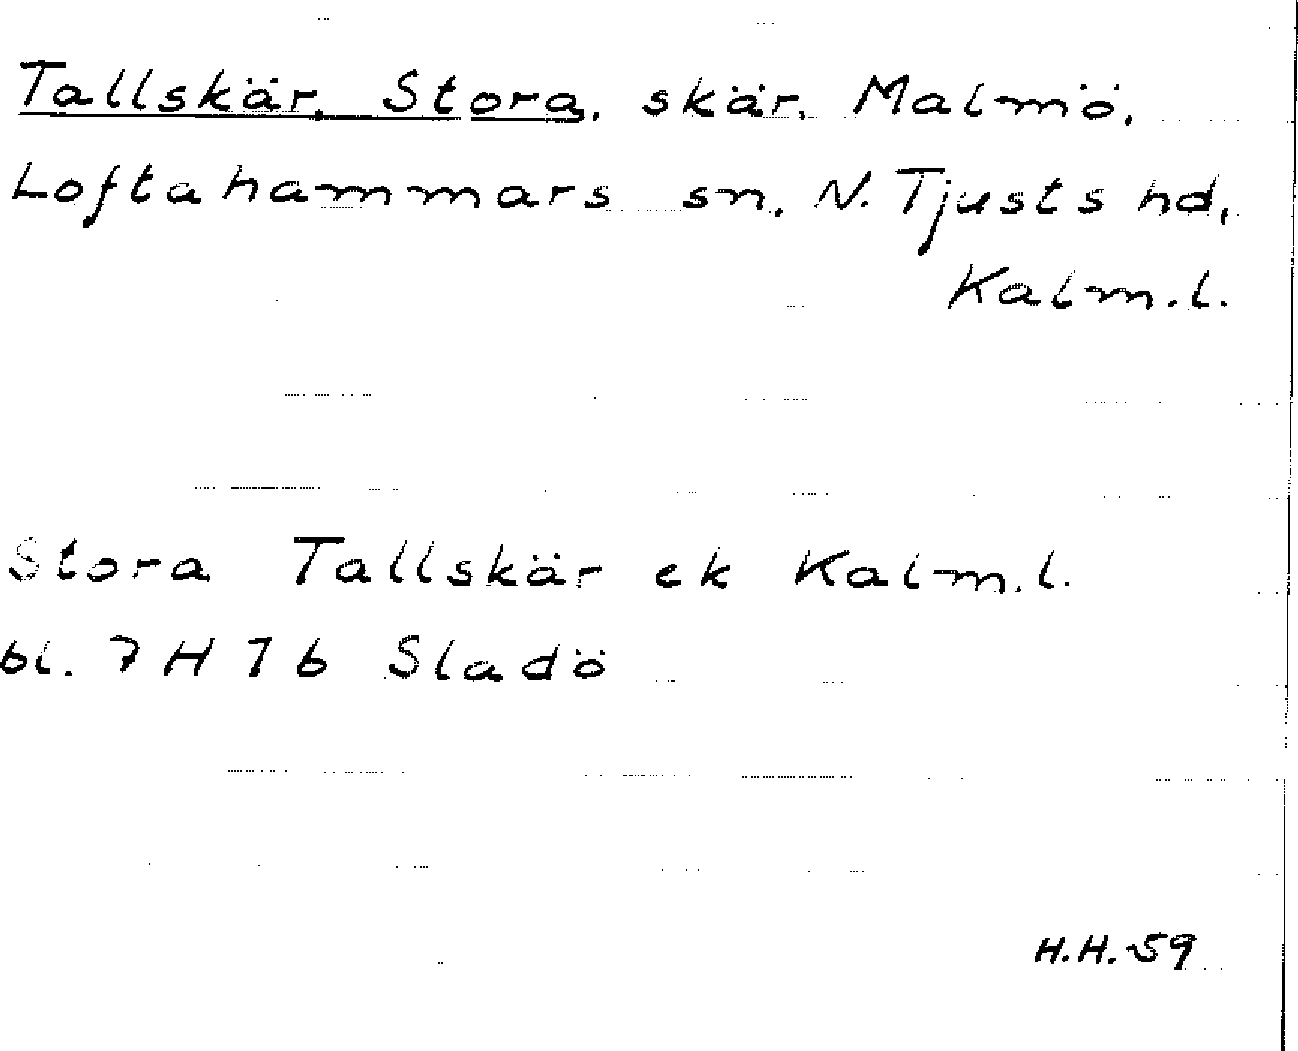 Tallskär, Stora, skär, Malmö,
Loftahammars sn, N. Tjusts hd,
Kalm. l.
Stora Tallskär ek Kalm. l.
bl. 7 H 7 b Sladö
H.H. -59